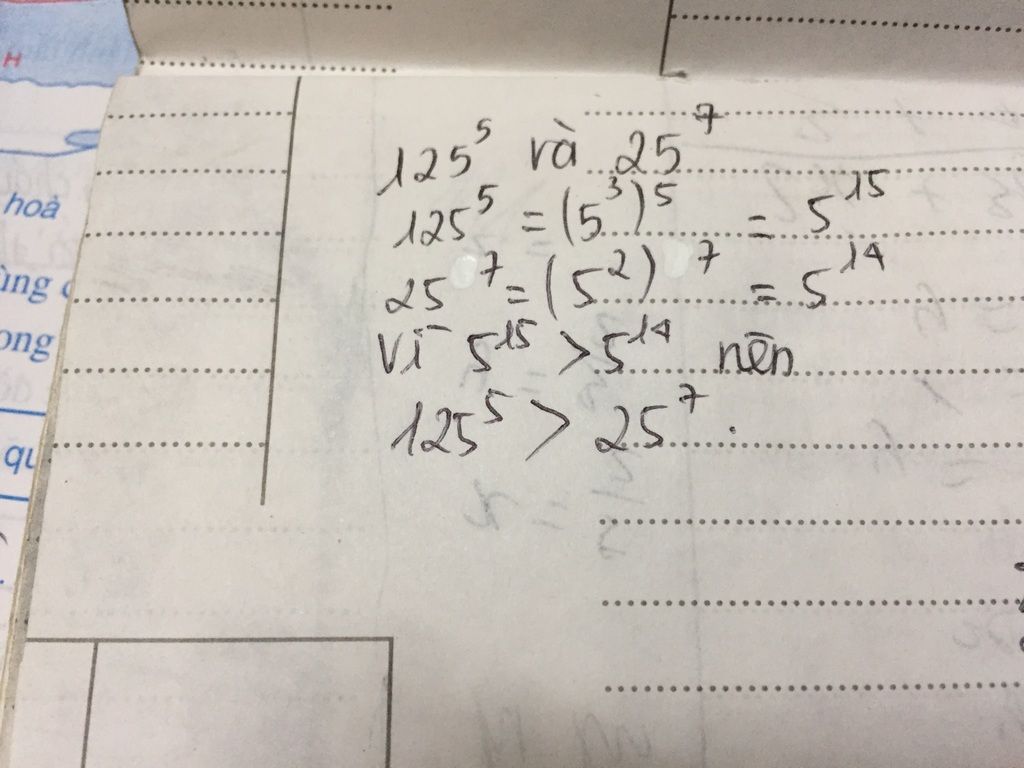 H
hoà
ùng
ong
qu
125⁵ và 25⁷
125⁵ = (5³)⁵ = 5¹⁵
25⁷ = (5²)⁷ = 5¹⁴
Vì 5¹⁵ > 5¹⁴ nên
125⁵ > 25⁷.